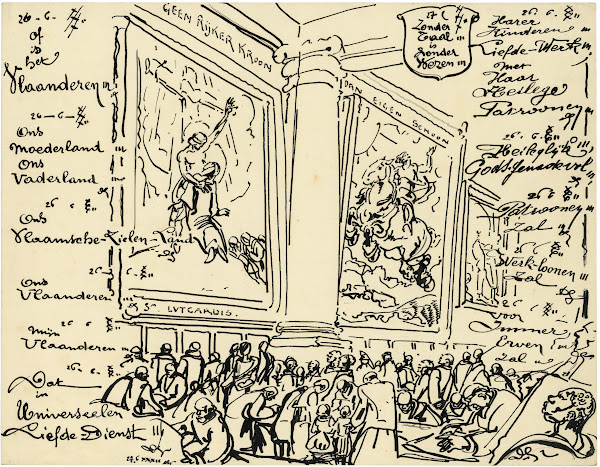 26-6-
Of
is
het
Vlaanderen
26-6-
Ons
Moederland
Ons
Vaderland
26 6
Ons
Vlaamsche-Zielen-Land
26-6
Ons
Vlaanderen
26 6
Mijn
Vlaanderen
26. 6.
Dat
in
Universeelen
Liefde Dienst
GEEN RIJKER KROON
DAN EIGEN SCHOON
ST LUTGARDIS.
27 6
Zonder
Taal
is
Zonder
Wezen
26. 6.
Harer
Kinderen
Liefde-Werk
met
Haar
Heilege
Patroonen
26. 6.
26 6
Patroonen
Zal
26. 6.
Werk-loonen
Zal
26 6
voor
Immer
Erven
Zal